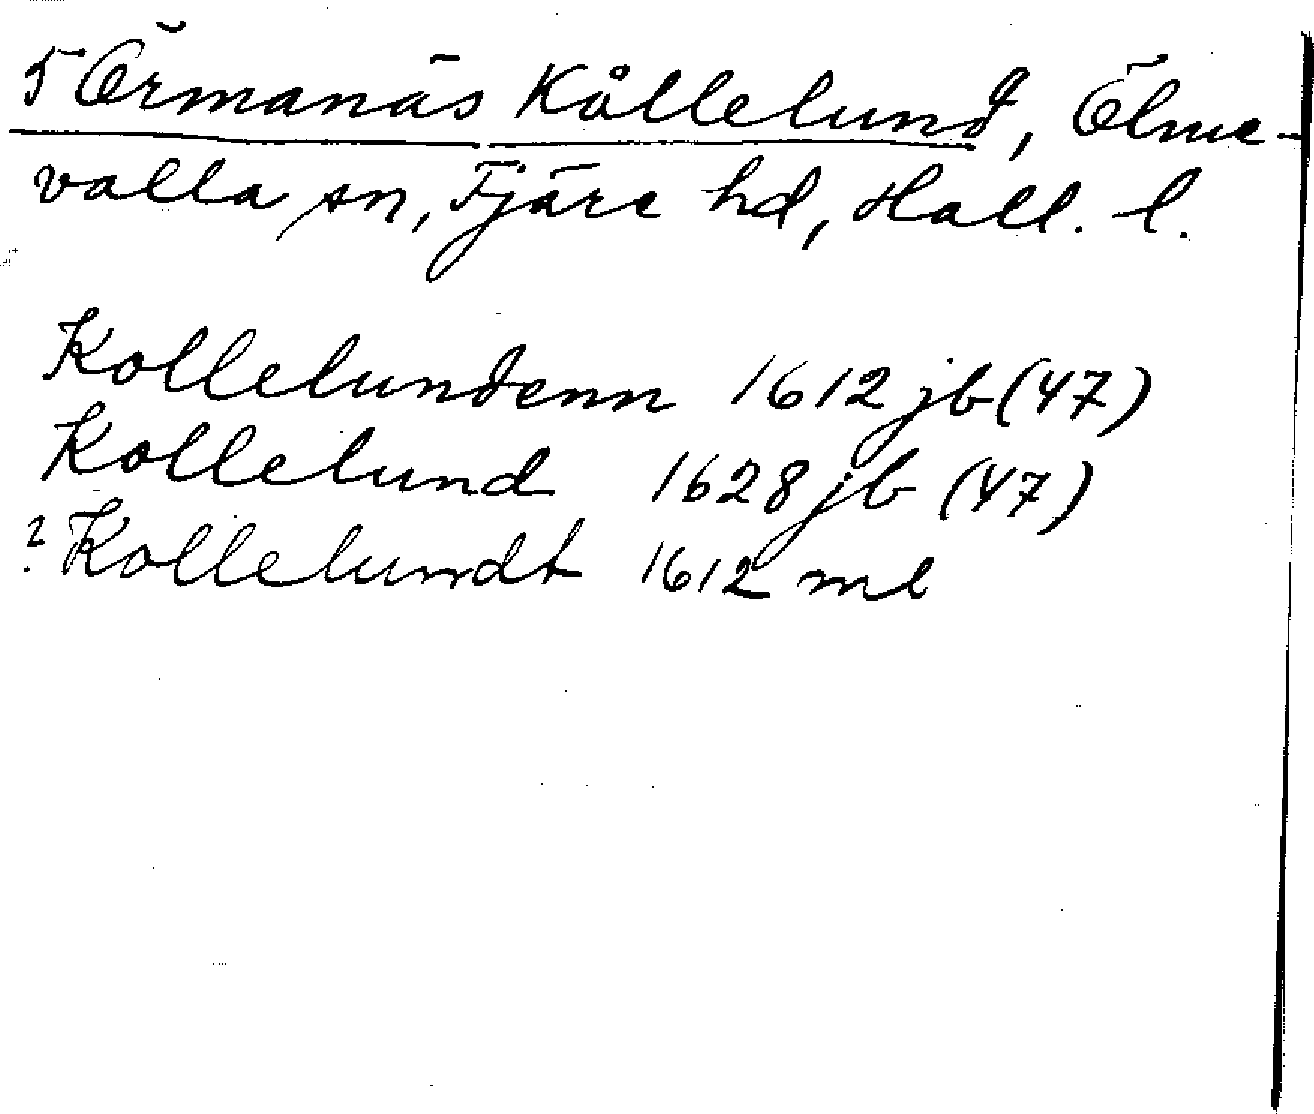 5 Örmanäs Kållelund, Ölme-
valla sn, Fjäre hd, Hall. l.
Kollelundenn 1612 jb (47)
Kollelund 1628 jb (47)
? Kollelundt 1612 ml